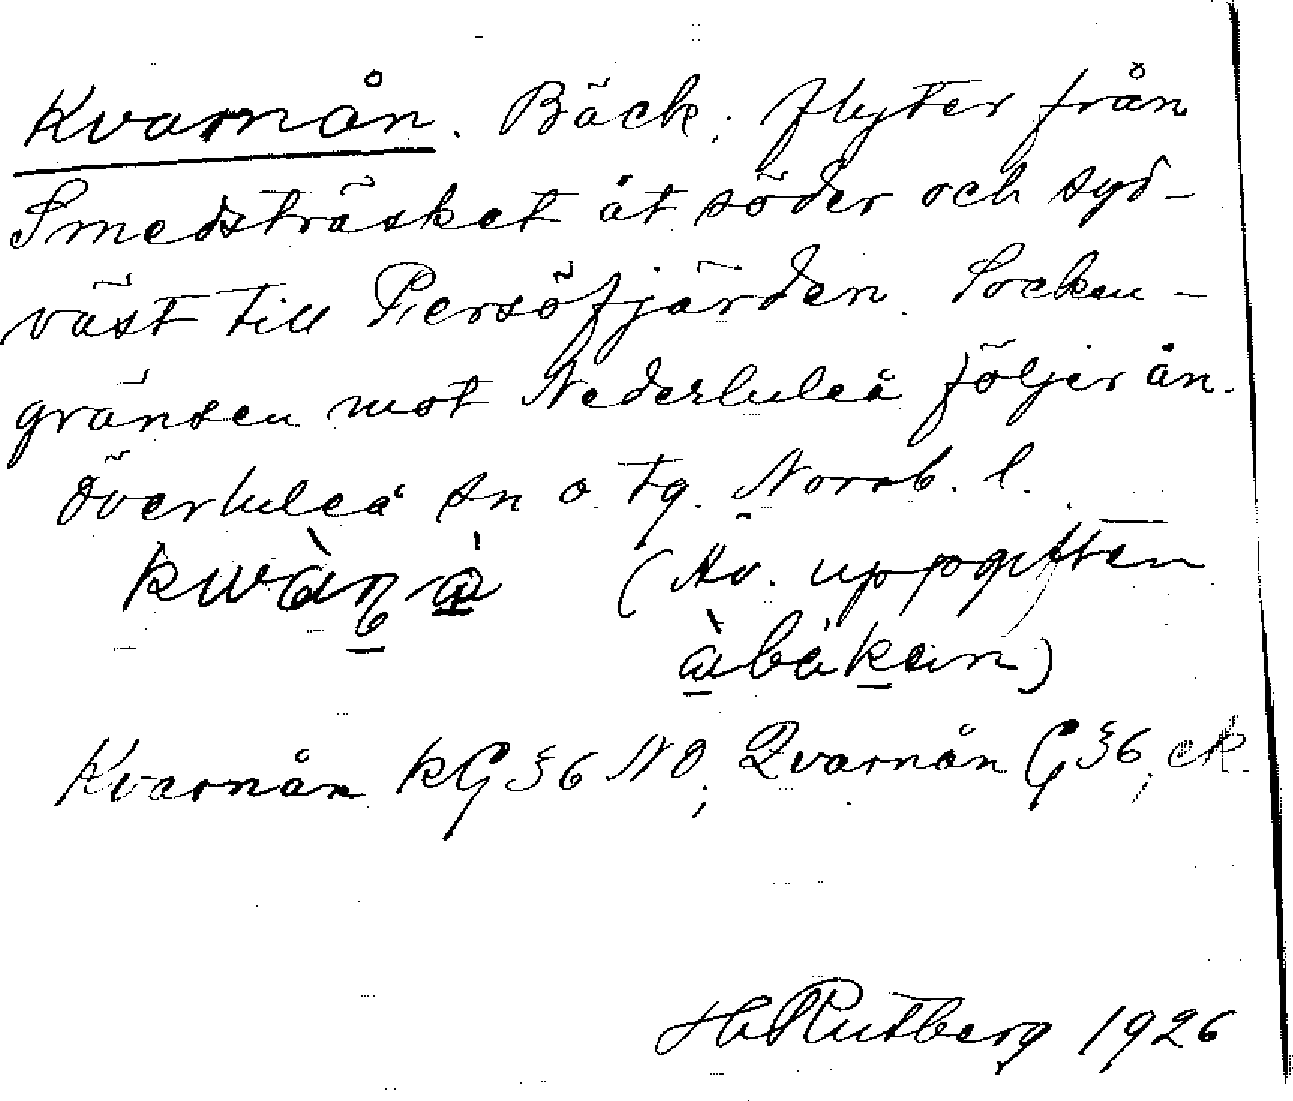 Kvarnån. Bäck; flyter från
Smedsträsket åt söder och syd-
väst till Persöfjärden. Socken-
gränsen mot Nederluleå följer ån.
Överluleå sn o. tg. Norrb. l.
kwàṇå̀ (Av. uppgiften
å̀bäkan)
Kvarnån KG §6 NO; Qvarnån G §6, ek.
H Rutberg 1926